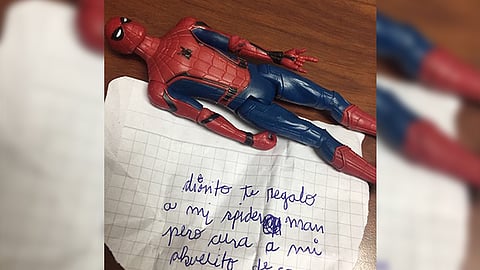 diosito te regalo
a mi spider man
pero cura a mi
abuelito de